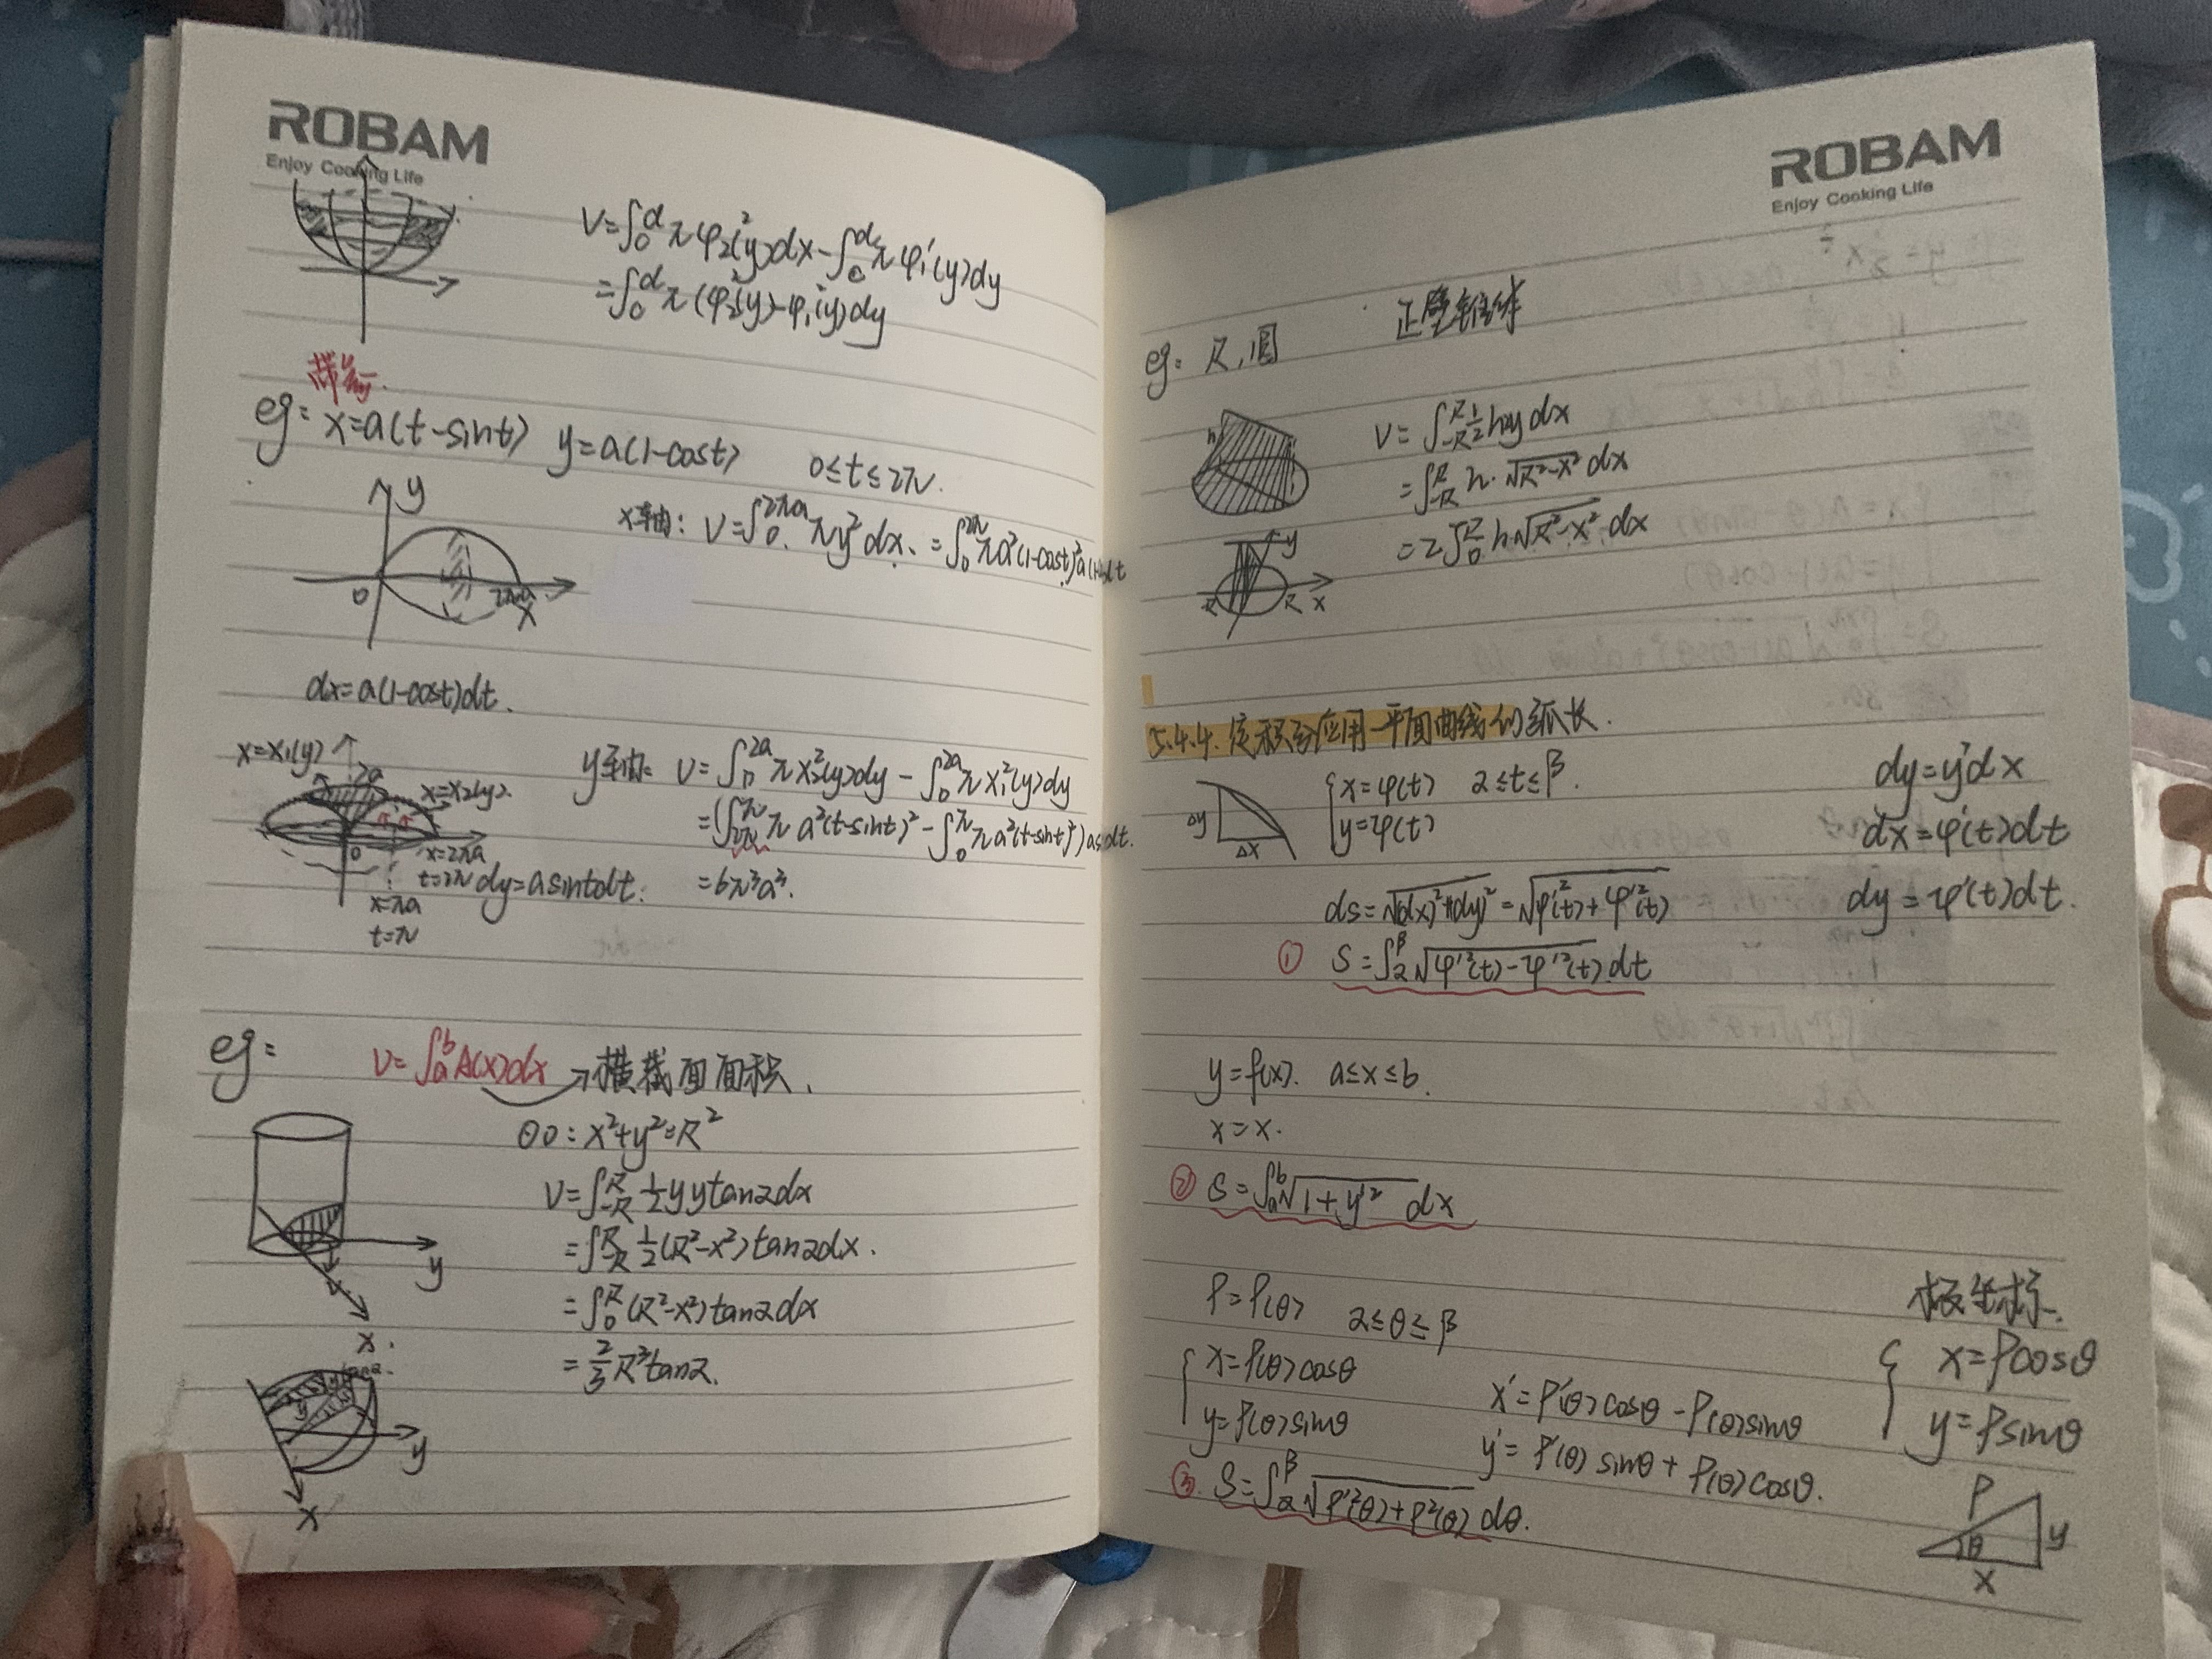 ROBAM
Enjoy Cooking Life
V=∫₀ᵈπφ₂²(y)dx-∫₀ᵈπφ₁²(y)dy
=∫₀ᵈπ(φ₂²(y)-φ₁²(y))dy
eg: x=a(t-sint) y=a(1-cost) 0≤t≤2π.
y
0
2πa
x
x轴: V=∫₀^{2πa}πy²dx.=∫₀^{2π}πa²(1-cost)²a(1-cost)dt
dx=a(1-cost)dt.
x=x₁(y)
2a
x=x₂(y).
0
x=2πa
t=2π
x=πa
t=π
y轴: V=∫₀^{2a}πx₂²(y)dy-∫₀^{2a}πx₁²(y)dy
=(∫_{2π}^{π}πa²(t-sint)²-∫₀^{π}πa²(t-sint)²)asintdt.
dy=asintdt. =6π³a³.
eg:
V=∫ₐᵇA(x)dx→横截面面积.
x²+y²=R²
V=∫_{-R}^{R}½yytanαdx
=∫_{-R}^{R}½(R²-x²)tanαdx.
=∫₀^{R}(R²-x²)tanαdx
=⅔R³tanα.
y
x.
y
x
ROBAM
Enjoy Cooking Life
eg: R,圆
h
V=∫_{-R}^{R}½h2ydx
=∫_{-R}^{R}h·√(R²-x²)dx
=2∫₀^{R}h√(R²-x²)dx
y
R
x
5.4.4.定积分应用-平面曲线的弧长.
Δy
Δx
{x=φ(t) α≤t≤β.
y=ψ(t)
dy=y'dx
dx=φ'(t)dt
dy=ψ'(t)dt.
ds=√((dx)²+(dy)²)=√(φ'²(t)+φ'²(t))
① S=∫_α^β√(φ'²(t)-ψ'²(t))dt
y=f(x). a≤x≤b.
x=x.
② S=∫ₐᵇ√(1+y'²)dx
ρ=ρ(θ) α≤θ≤β
极坐标.
{x=ρcosθ
y=ρsinθ
{x=ρ(θ)cosθ
y=ρ(θ)sinθ
x'=ρ'(θ)cosθ-ρ(θ)sinθ
y'=ρ'(θ)sinθ+ρ(θ)cosθ.
③. S=∫_α^β√(ρ'²(θ)+ρ²(θ))dθ.
ρ
θ
y
x